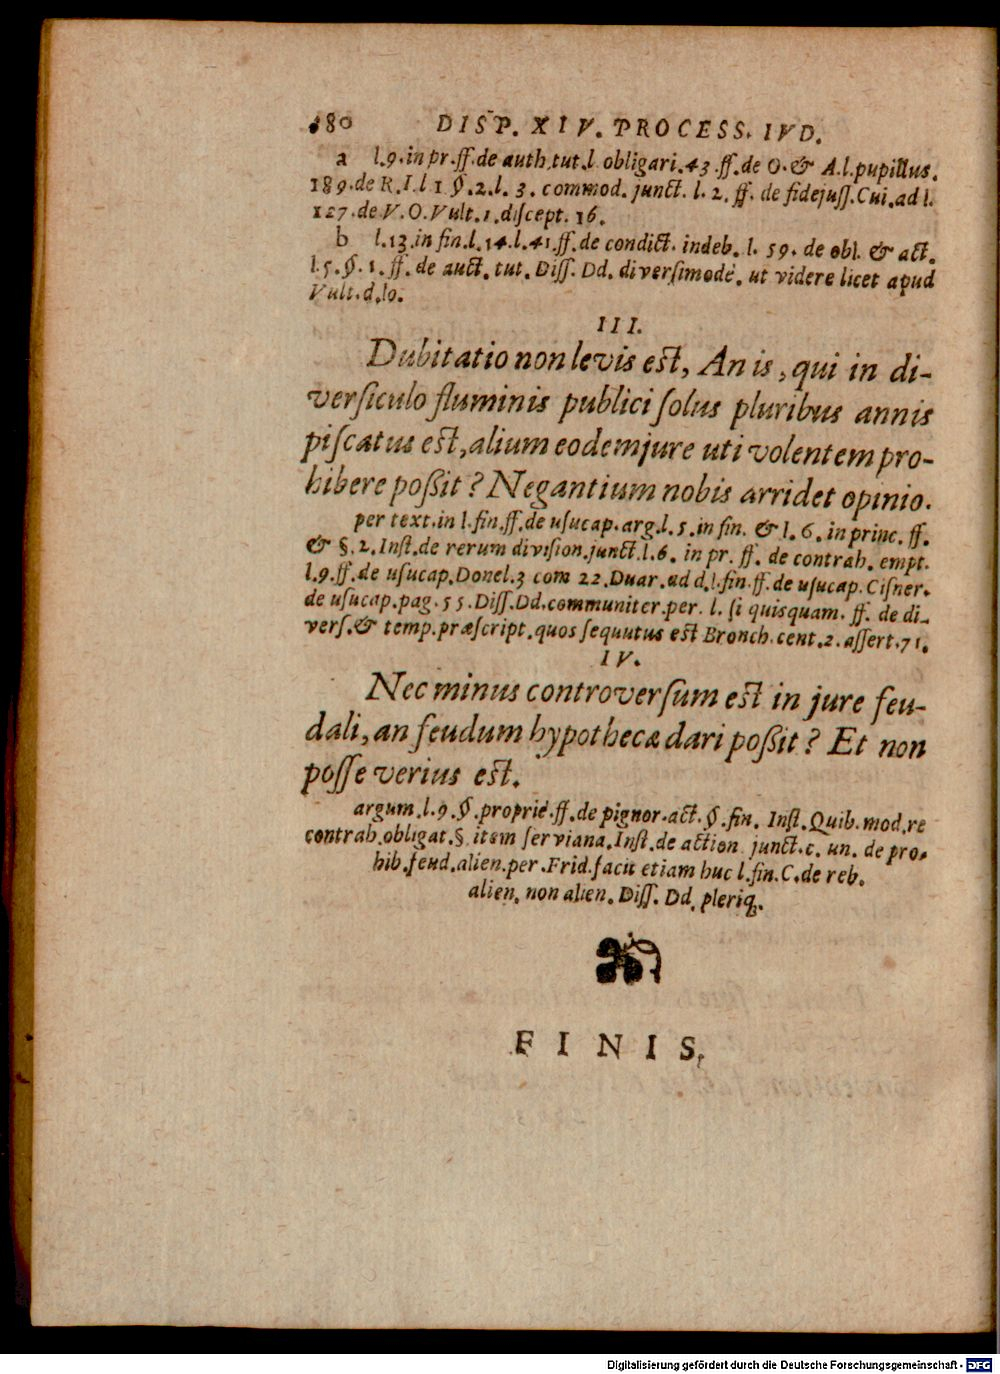 180 DISP. XIV. PROCESS. IVD.
a l.9.in pr.ff.de auth.tut.l obligari.43.ff.de O.& A.l.pupillus.
189.de R.I.l 1 §.2.l. 3. commod. junct. l. 2. ff. de fidejuſſ.Cui.ad l.
127.de V.O.Vult.1.diſcept. 16.
b l.13.in fin.l.14.l.41.ff.de condict. indeb. l. 59. de obl. & act.
l.5.§.1. ff. de auct. tut. Diſſ. Dd. diverſimodè. ut videre licet apud
Vult.d.lo.
III.
Dubitatio non levis est, An is, qui in di-
verſiculo fluminis publici ſolus pluribus annis
piſcatus est, alium eodem jure uti volentem pro-
hibere poßit? Negantium nobis arridet opinio.
per text.in l.fin.ff.de uſucap.arg.l.5.in fin. & l. 6. in princ. ff.
& §.2.Inſt.de rerum diviſion.junct.l.6. in pr. ff. de contrah. empt.
l.9.ff.de uſucap.Donel.3 com 22.Duar.ad d.l.fin.ff.de uſucap.Ciſner.
de uſucap.pag.55.Diſſ.Dd.communiter.per. l. ſi quisquam. ff. de di-
verſ.& temp.præſcript.quos ſequutus est Bronch.cent.2.aſſert.71.
IV.
Nec minus controverſum est in jure feu-
dali, an feudum hypothecæ dari poßit? Et non
poſſe verius est.
argum.l.9.§.propriè.ff.de pignor.act.§.fin. Inſt.Quib.mod.re
contrah.obligat.§.item ſerviana.Inſt.de action junct.c. un. de pro-
hib.feud.alien.per.Frid.facit etiam huc l.fin.C.de reb.
alien. non alien. Diſſ. Dd. pleriq.
FINIS.
Digitalisierung gefördert durch die Deutsche Forschungsgemeinschaft - DFG